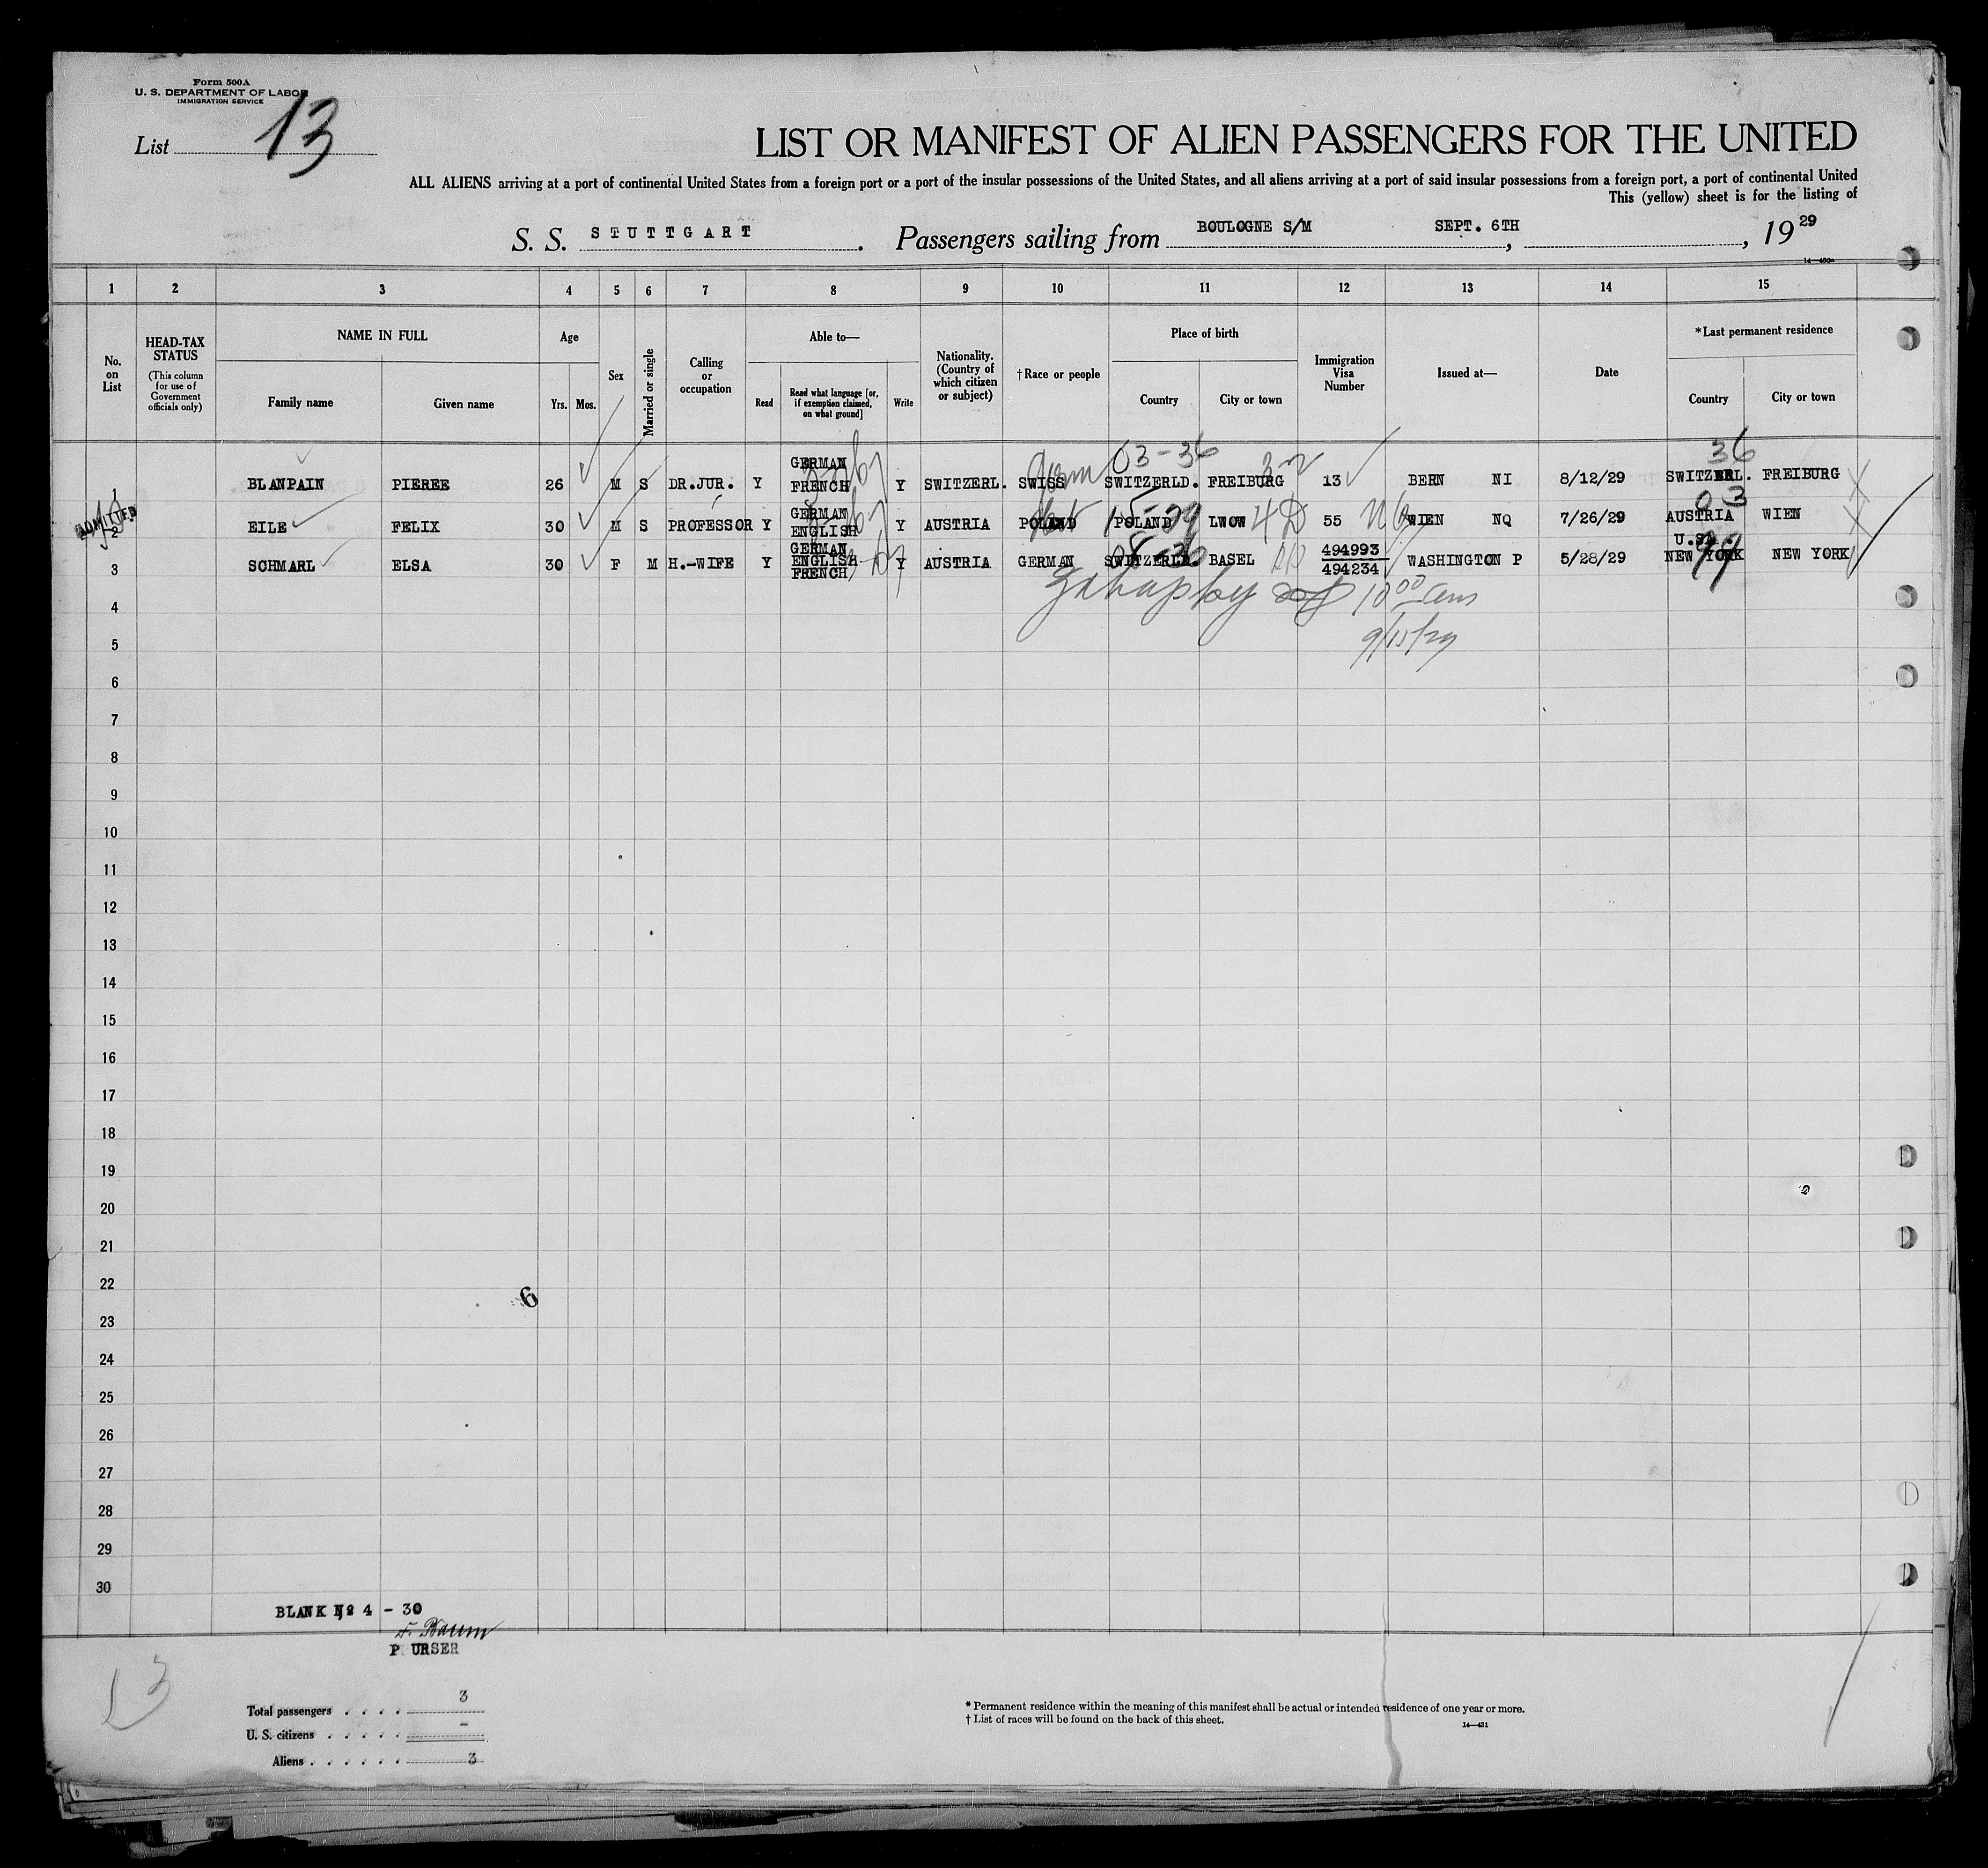 Form 500A
U. S. DEPARTMENT OF LABOR
IMMIGRATION SERVICE
List 13
LIST OR MANIFEST OF ALIEN PASSENGERS FOR THE UNITED
ALL ALIENS arriving at a port of continental United States from a foreign port or a port of the insular possessions of the United States, and all aliens arriving at a port of said insular possessions from a foreign port, a port of continental United
This (yellow) sheet is for the listing of
S. S. STUTTGART. Passengers sailing from BOULOGNE S/M SEPT. 6TH, , 19 29
1 2 3 4 5 6 7 8 9 10 11 12 13 14 15
No. on List
HEAD-TAX STATUS
(This column for use of Government officials only)
NAME IN FULL
Family name Given name
Age
Yrs. Mos.
Sex
Married or single
Calling or occupation
Able to—
Read
Read what language [or, if exemption claimed, on what ground]
Write
Nationality. (Country of which citizen or subject)
†Race or people
Place of birth
Country City or town
Immigration Visa Number
Issued at—
Date
*Last permanent residence
Country City or town
03-36 36
1 BLANPAIN PIEREE 26 M S DR.JUR. Y GERMAN FRENCH Y SWITZERL. SWISS Germ SWITZERLD. FREIBURG 13 BERN NI 8/12/29 SWITZERL. FREIBURG
ADMITTED
03
2 EILE FELIX 30 M S PROFESSOR Y GERMAN ENGLISH Y AUSTRIA POLAND POLAND LWOW 4D 55 WIEN NQ 7/26/29 AUSTRIA WIEN
3 SCHMARL ELSA 30 F M H.-WIFE Y GERMAN ENGLISH FRENCH Y AUSTRIA GERMAN SWITZERLD. BASEL 494993 494234 WASHINGTON P 5/28/29 U.S. NEW YORK NEW YORK
99
4
10 00 am
5
9/15/29
6
7
8
9
10
11
12
13
14
15
16
17
18
19
20
21
22
23
24
25
26
27
28
29
30
6
BLANK No 4 - 30
F. Baum
PURSER
13
Total passengers . . . . 3
U. S. citizens . . . . . -
Aliens . . . . . . 3
* Permanent residence within the meaning of this manifest shall be actual or intended residence of one year or more.
† List of races will be found on the back of this sheet.
14—431